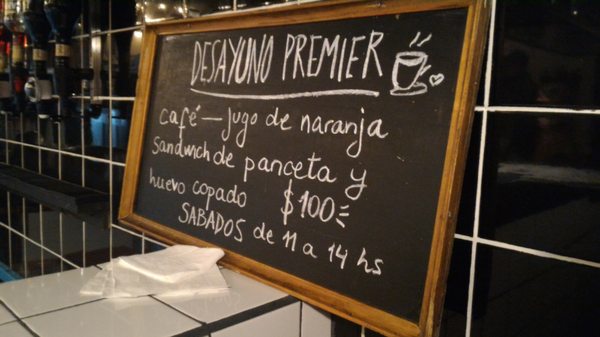 DESAYUNO PREMIER
café — jugo de naranja
sandwich de panceta y
huevo copado $100
SABADOS de 11 a 14 hs